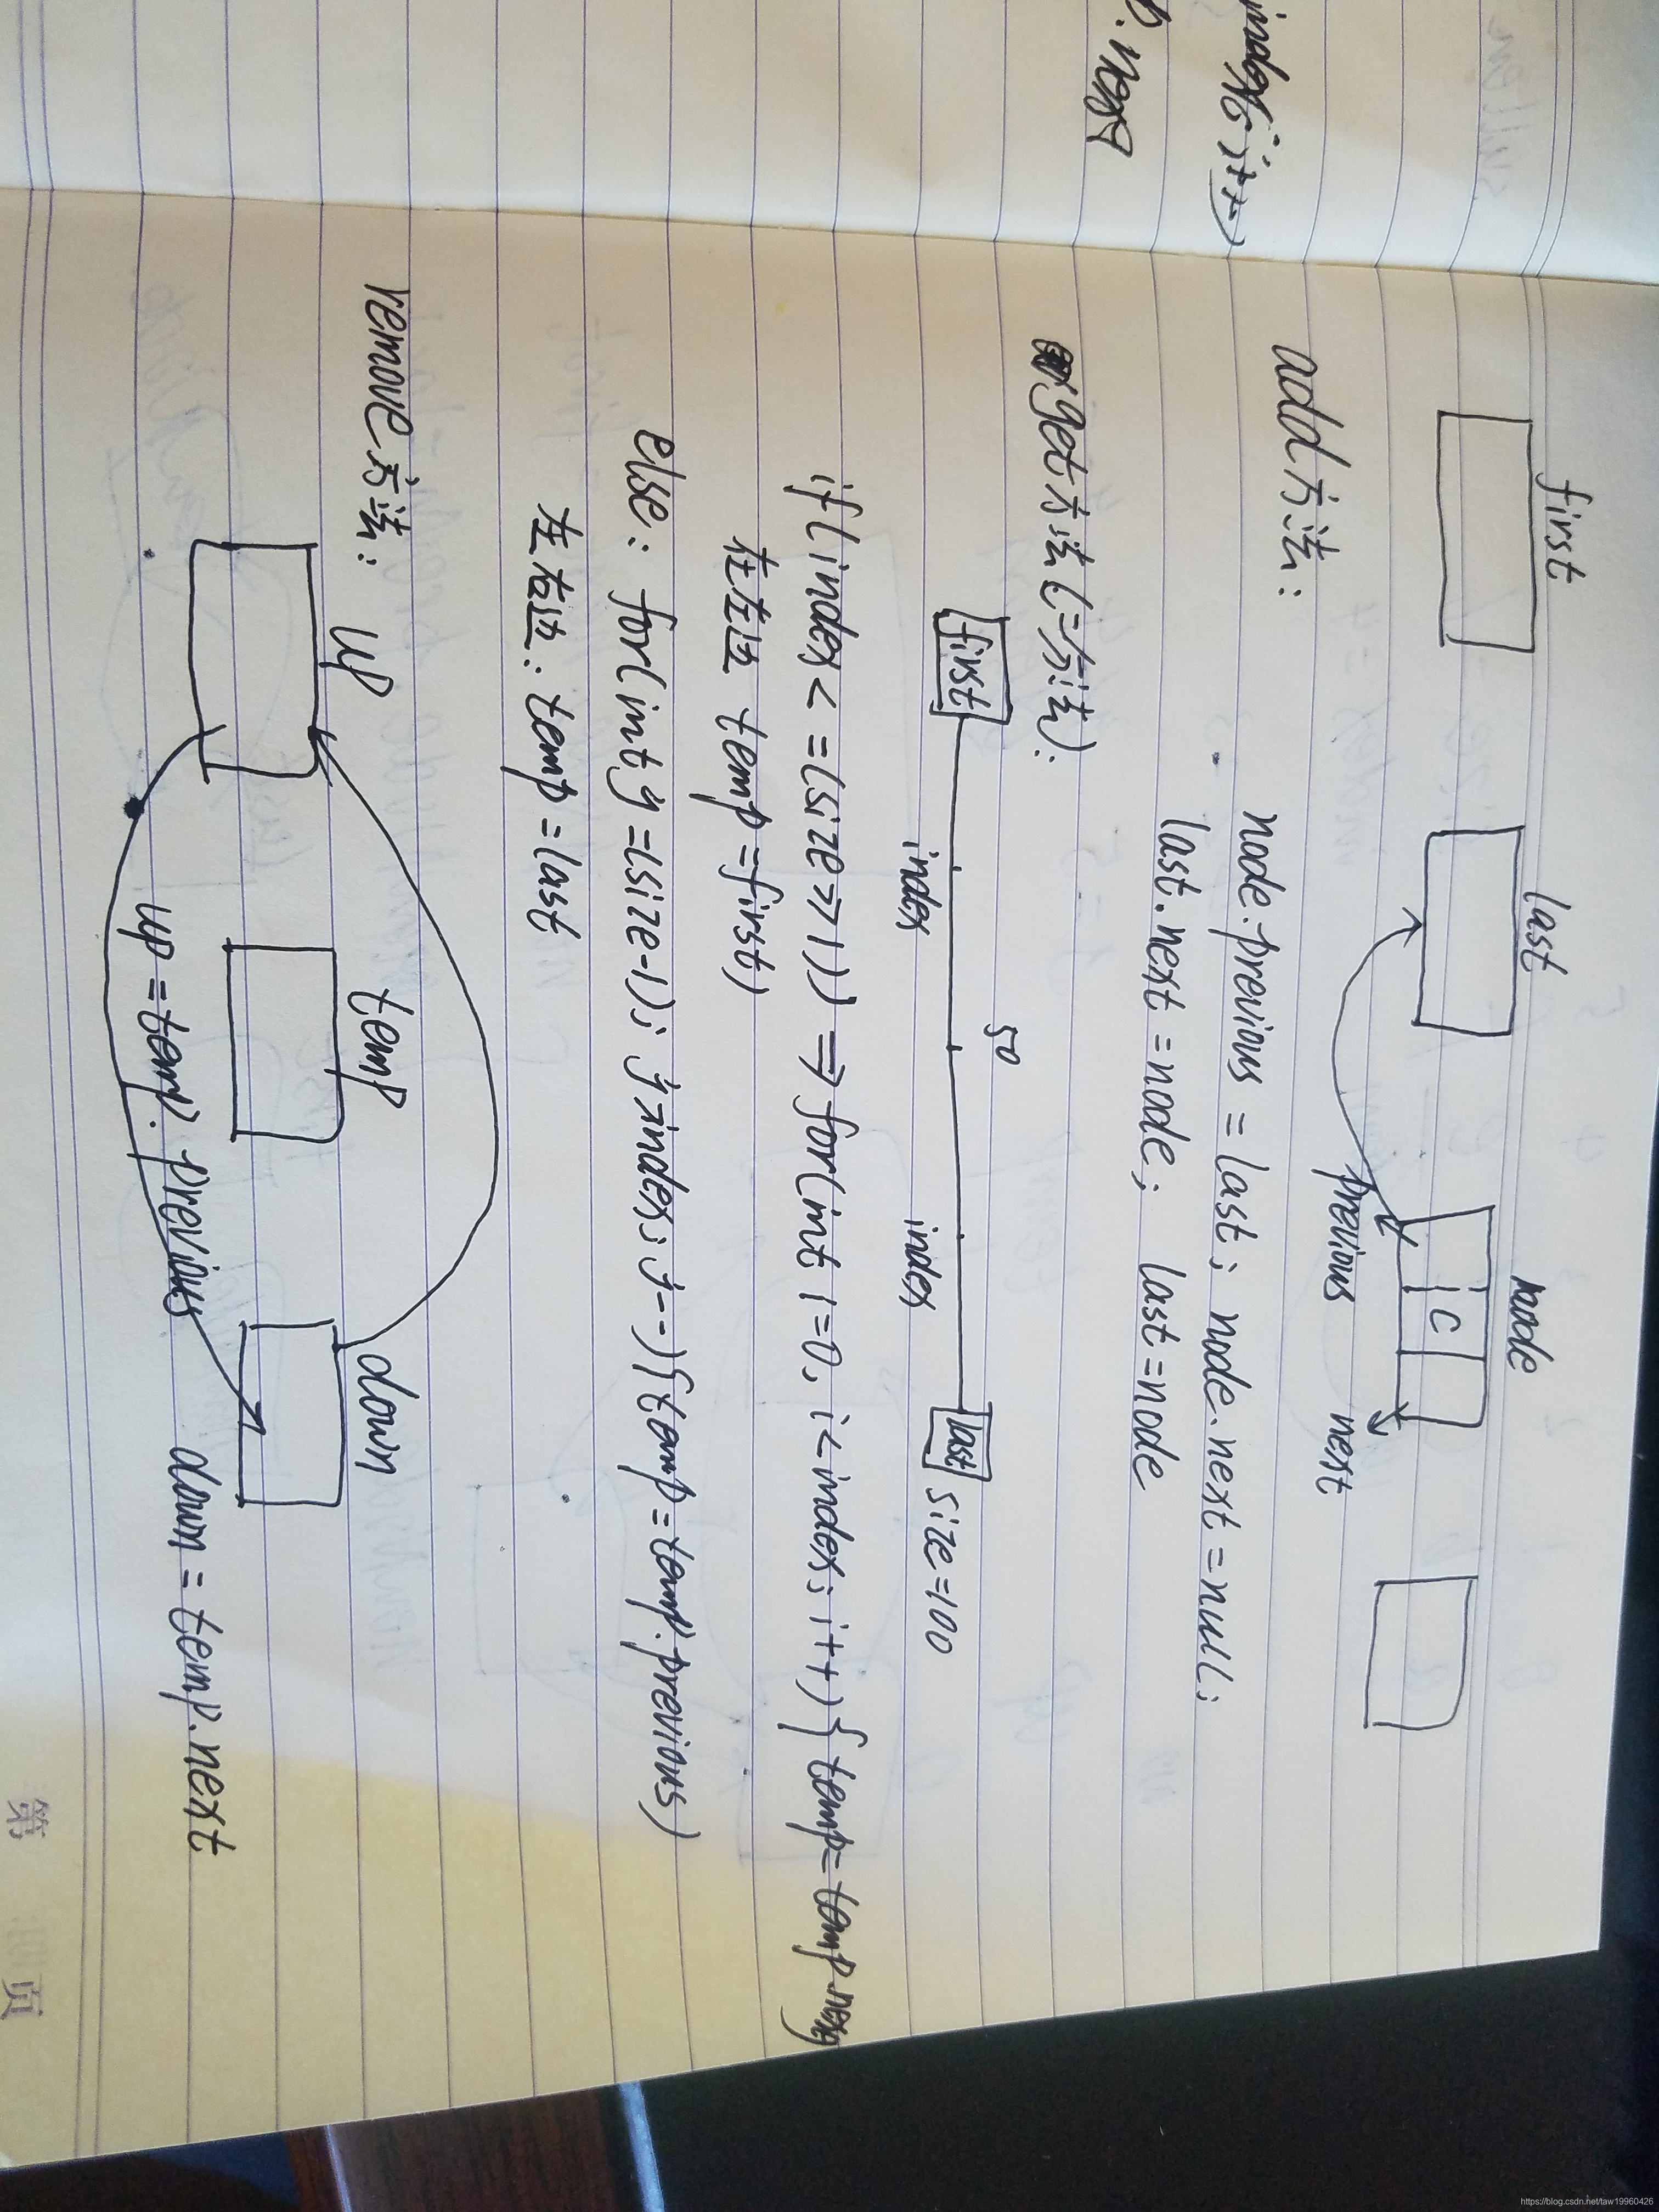 index; i++)
.next
first last node
C
previous next
add方法:
node.previous = last; node.next = null;
last.next = node; last = node
get方法(二分法):
first 50 last size=100
index index
if(index <= (size >> 1)) ⇒ for(int i=0, i<index; i++){temp=temp.next
在左边 temp = first)
else: for(int y=(size-1); y>index; y--){temp = temp.previous)
左右边: temp = last
remove方法:
up temp down
up = temp.previous down = temp.next
第 页
https://blog.csdn.net/taw19960426